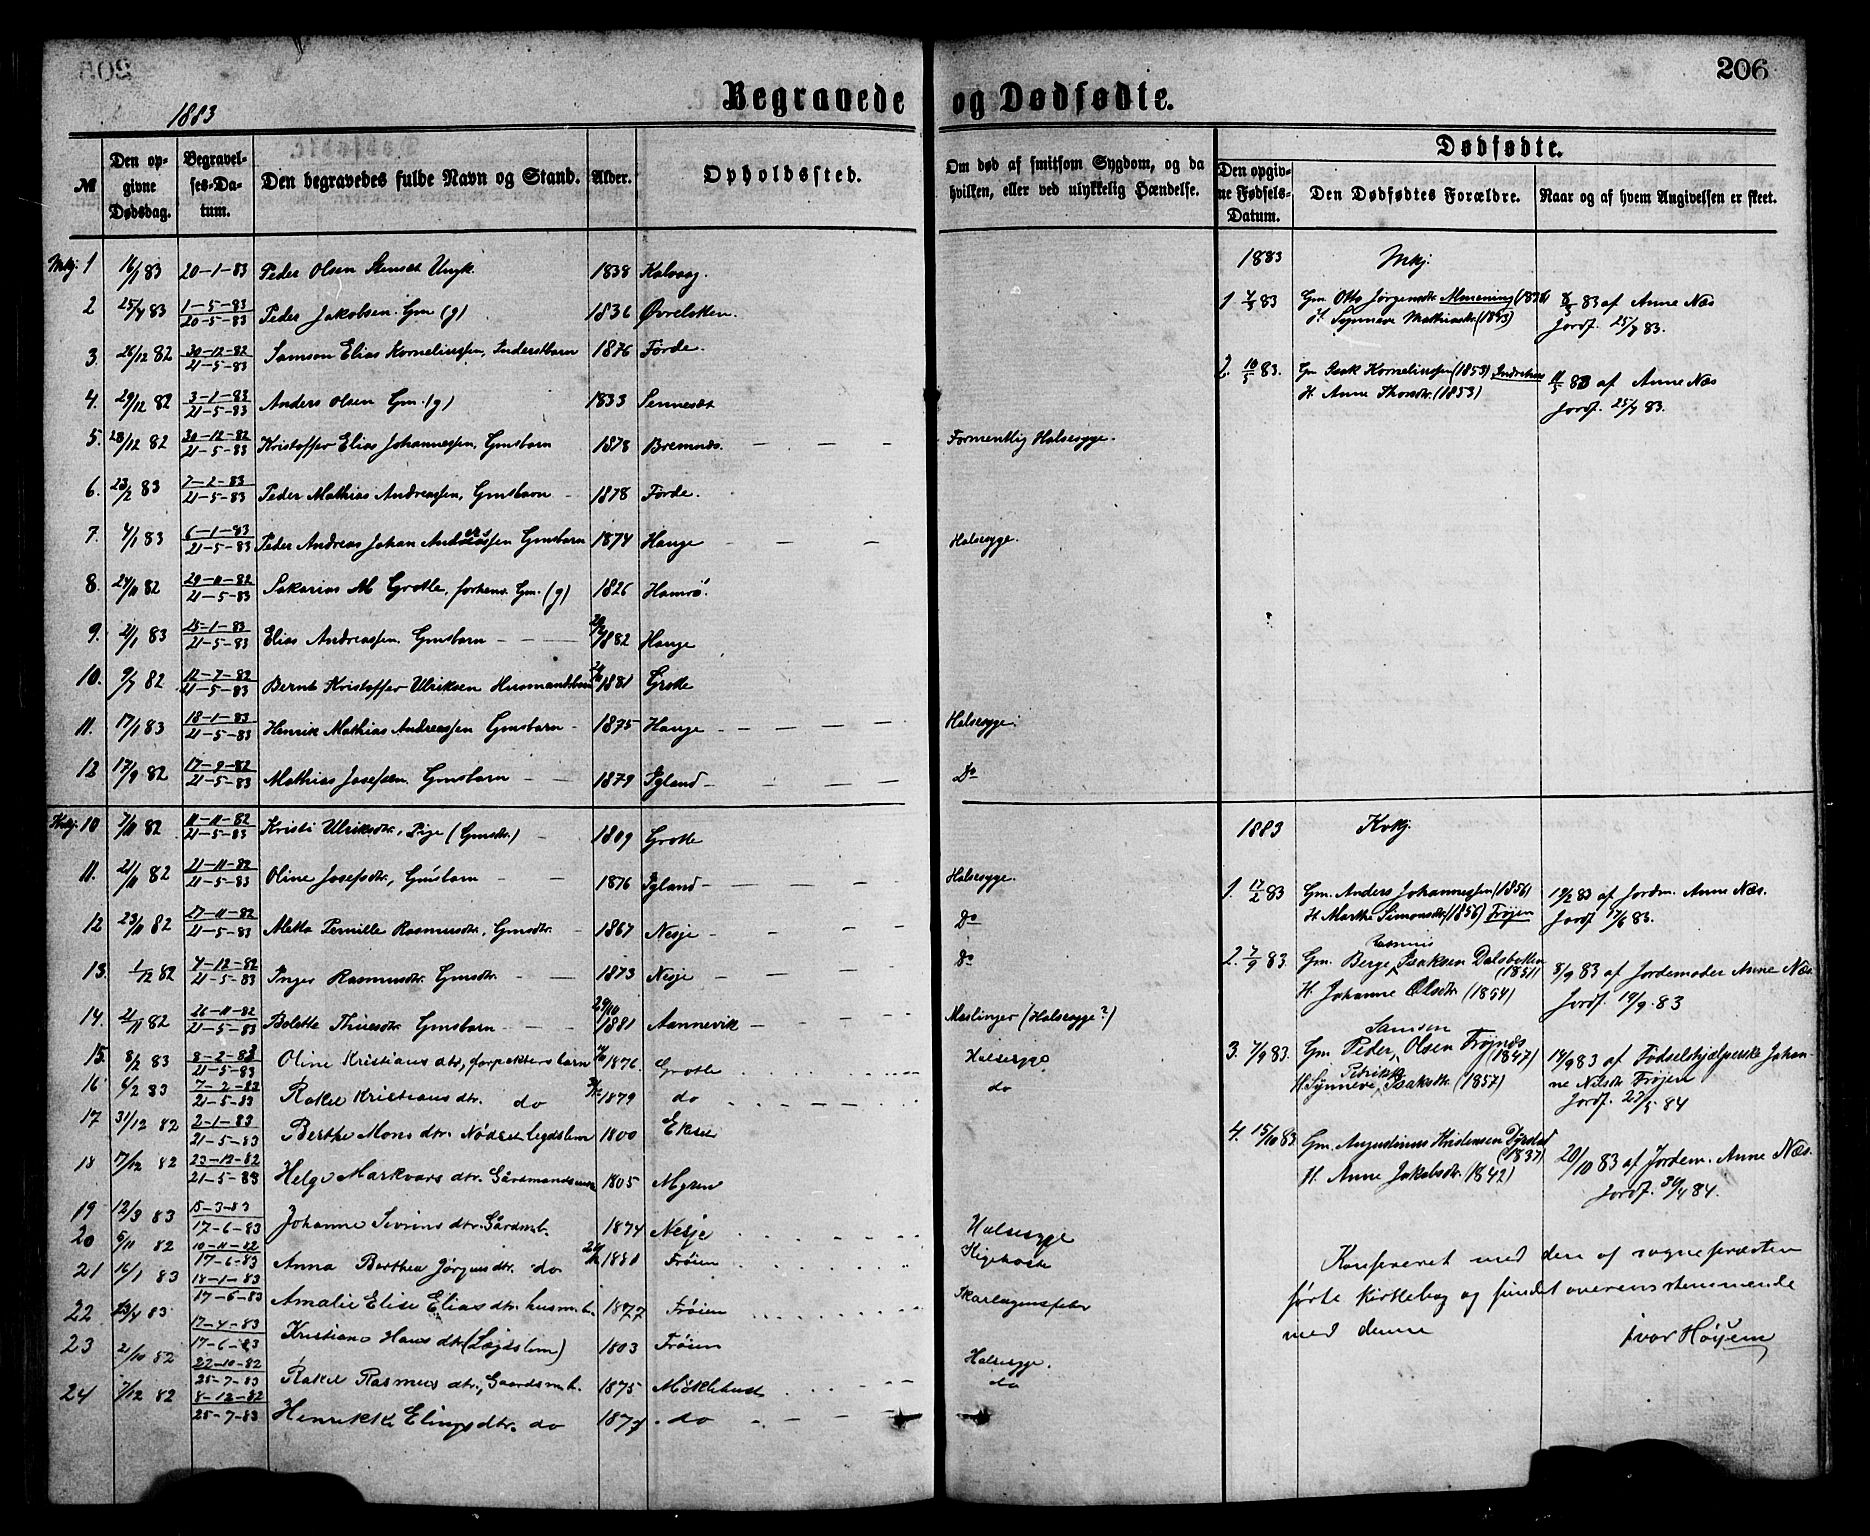 206
1883
Begravede og Dødfødte.
№
Den opgivne Dødsdag.
Begravelses-Datum.
Den begravedes fulde Navn og Stand.
Alder.
Opholdssted.
Om død af smitsom Sygdom, og da hvilken, eller ved ulykkelig Hændelse.
Dødfødte.
Den opgivne Fødsels-Datum.
Den Dødfødtes Forældre.
Naar og af hvem Angivelsen er skeet.
Mkj. 1 16/1 83 20-1-83 Peder Olsen Stensæt Ungk. 1838 Kalvaag.
2 25/4 83 1-5-83 20-5-83 Peder Jakobsen Gm (g) 1836
3. 26/12 82 30-12-82 21-5-83 Samson Elias Korneliussen, Inderstbarn 1876 Førde.
4. 29/12 82 3-1-83 21-5-83 Anders Olsen Gm. (g) 1833 Sennesæt
5. 28/12 82 30-12-82 21-5-83 Kristoffer Elias Johannessen, Gmsbarn 1878 Bremnæs. Formentlig Halsesyge.
6. 23/2 83 7-2-83 21-5-83 Peder Mathias Andreassen, Gmsbarn 1878 Førde.
7. 4/1 83 6-1-83 21-5-83 Peder Andreas Johan Andreassen Gmsbarn 1874 Hauge Halsesyge.
8. 24/11 82 29-11-82 21-5-83 Sakarias M Grotle, forhenv. Gm. (g) 1826 Hamrø.
9. 21/1 83 25-1-83 21-5-83 Elias Andreassen Gmsbarn 1882 Hauge
10. 9/7 82 12-7-82 21-5-83 Bernt Kristoffer Ulriksen Husmandsbarn 1881 Grotle
11. 17/1 83 18-1-83 21-5-83 Henrik Mathias Andreassen Gmsbarn 1875 Hauge Halsesyge.
12 17/9 82 17-9-82 21-5-83 Mathias Josefsen, Gmsbarn 1879 Igland Do
Kvkj. 10 7/11 82 11-11-82 21-5-83 Kristi Ulriksdtr., Pige (Gmsdtr.) 1809 Grotle
11. 21/11 82 21-11-82 21-5-83 Oline Josefsdtr., Gmsbarn 1876 Igland Halsesyge.
12 23/11 82 27-11-82 21-5-83 Metta Pernille Rasmusdtr., Gmsdtr. 1867 Nesje Do
13. 1/12 82 4-12-82 21-5-83 Inger Rasmusdtr. Gmsdtr. 1873 Nesje do
14. 21/11 82 26-11-82 21-5-83 Bolette Thuesdtr Gmsbarn 29/10 1881 Aannevik Meslinger (Halsesyge?)
15. 8/2 83 8-2-83 21-5-83 Oline Kristians dtr, forpakters barn 1876. Grotle Halsesyge
16 6/2 83 7-2-83 21-5-83 Rakel Kristians dtr. do 1879 do do
17 31/12 82 2-1-83 21-5-83 Berthe Mons dtr. Nødset legdslem 1800 Ekset
18 17/12 82 23-12-82 21-5-83 Helge Markvars dtr. Gårdmands 1805 Myren
19 12/3 83 15-3-83 17-6-83 Johanne Sivrins dtr. Gårdmb. 1874 Nesje Halsesyge
20 6/11 82 10-11-82 17-6-83 Anna Berthea Jørgens dtr. do 1880 Frøien Kighoste
21 16/1 83 18-1-83 17-6-83 Amalie Elise Elias dtr. husm. b. 1877 Frøien Skarlagensfeber
22 13/4 83 17-4-83 17-6-83 Kristiane Hans dtr (Legdslem) 1803 Frøien
23 2/10 82 22-10-82 25-7-83 Rakel Rasmus dtr., Gaardsm. b. 1875 Myklebust Halsesyge.
24 7/12 82 8-12-82 25-7-83 Henrikke Elings dtr. do 1877 do do
1883 Mkj.
1 83 Gm. Otto Jørgensdtr Almening
H. Synneve Mathiasdtr. (1843)
83 af Anne Næs
Jordf. 25/7 83.
2. 10/5 83. Gm Isak Kornelinssen (1853) Indrehus
H. Anne Thomsdtr. (1853)
11/5 83 af Anne Næs
Jordf. 25/7 83.
1883 Kvkj.
1. 17/2 83 Gm. Anders Johannessen (1856)
H. Marthe Simonsdtr. (1856) Frøien
19/2 83 af Jordm. Anne Næs.
Jordf 17/6 83.
2. 7/9 83 Gm. Berge Rasmus Isaksen Dalsbotten (1851)
H. Johanne Olsdtr. (1854)
8/9 83 af Jordemoder Anne Næs.
Jordf. 19/9. 83
3. 7/9 83. Gm Peder Samson Olsen Frøinæs (1847)
H. Synneve Petrikke Isaksdtr. (1857)
14/9 83 af Fødselshjælperske Johanne Nilsdtr Frøien
Jordf. 27/5 84
4. 15/10 83 Gm. Augustinus Kristensen Dyrstad (1837)
H. Anne Jakobsdtr. (1842)
20/10 83 af Jordem. Anne Næs.
Jordf. 30/4 84.
Konfereret med den af sognepræsten
førte kirkebog og fundet overensstemmende
med denne Ivar Høyem